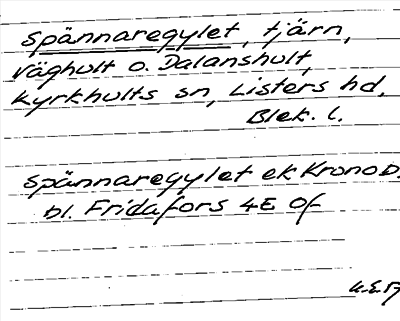 Spännaregylet, tjärn,
Väghult o. Dalanshult,
Kyrkhults sn, Listers hd.
Blek. l.
Spännaregylet ek Krono D.
bl. Fridafors 4E Of